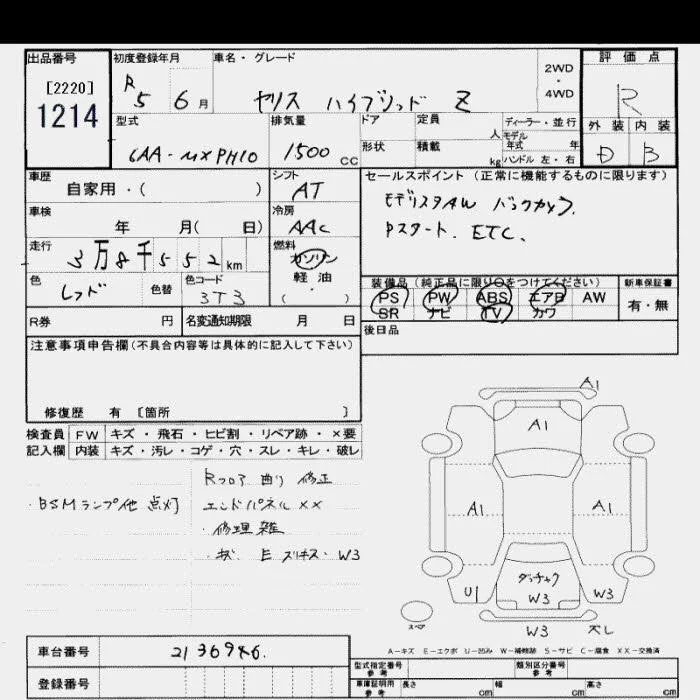 出品番号 初度登録年月 車名・グレード 評価点
[2220]
1214
R 5 6月
ヤリス ハイブリッド Z
2WD
・
4WD
R
型式 排気量 ドア 定員 人 ディーラー・並行
モデル
年式 年
外装 内装
6AA-MXPH10 1500CC 形状 積載 kg ハンドル 左・右 D B
車歴 シフト セールスポイント(正常に機能するものに限ります)
自家用・( ) AT
モデリスタAW バックカメラ.
車検 冷房
年 月( 日) AAC
Pスタート. ETC.
走行 燃料
3万8千552km ガソリン
軽油
( ・ )
色 色替 色コード
レッド 3T3
装備品(純正品に限り○をつけてください) 新車保証書
PS PW ABS エアB AW 有・無
SR ナビ TV カワ
R券 円 名変通知期限 月 日 後日品
注意事項申告欄(不具合内容等は具体的に記入して下さい)
修復歴 有 〔箇所 〕
検査員 FW キズ・飛石・ヒビ割・リペア跡・×要
記入欄 内装 キズ・汚レ・コゲ・穴・スレ・キレ・破レ
・BSMランプ他 点灯
Rフロア 曲り 修正
エンドパネル XX
・修理雑
・キズ E スリキズ・W3
A1
A1
A1 A1
U1 W3 W3
W3 大レ
スペア
A-キズ E-エクボ U-凹み W-補修跡 S-サビ C-腐食 XX-交換済
車台番号 2136946.
登録番号
型式指定番号
参考
類別区分番号
参考
車庫証明用
参考
長さ cm 幅 cm 高さ cm